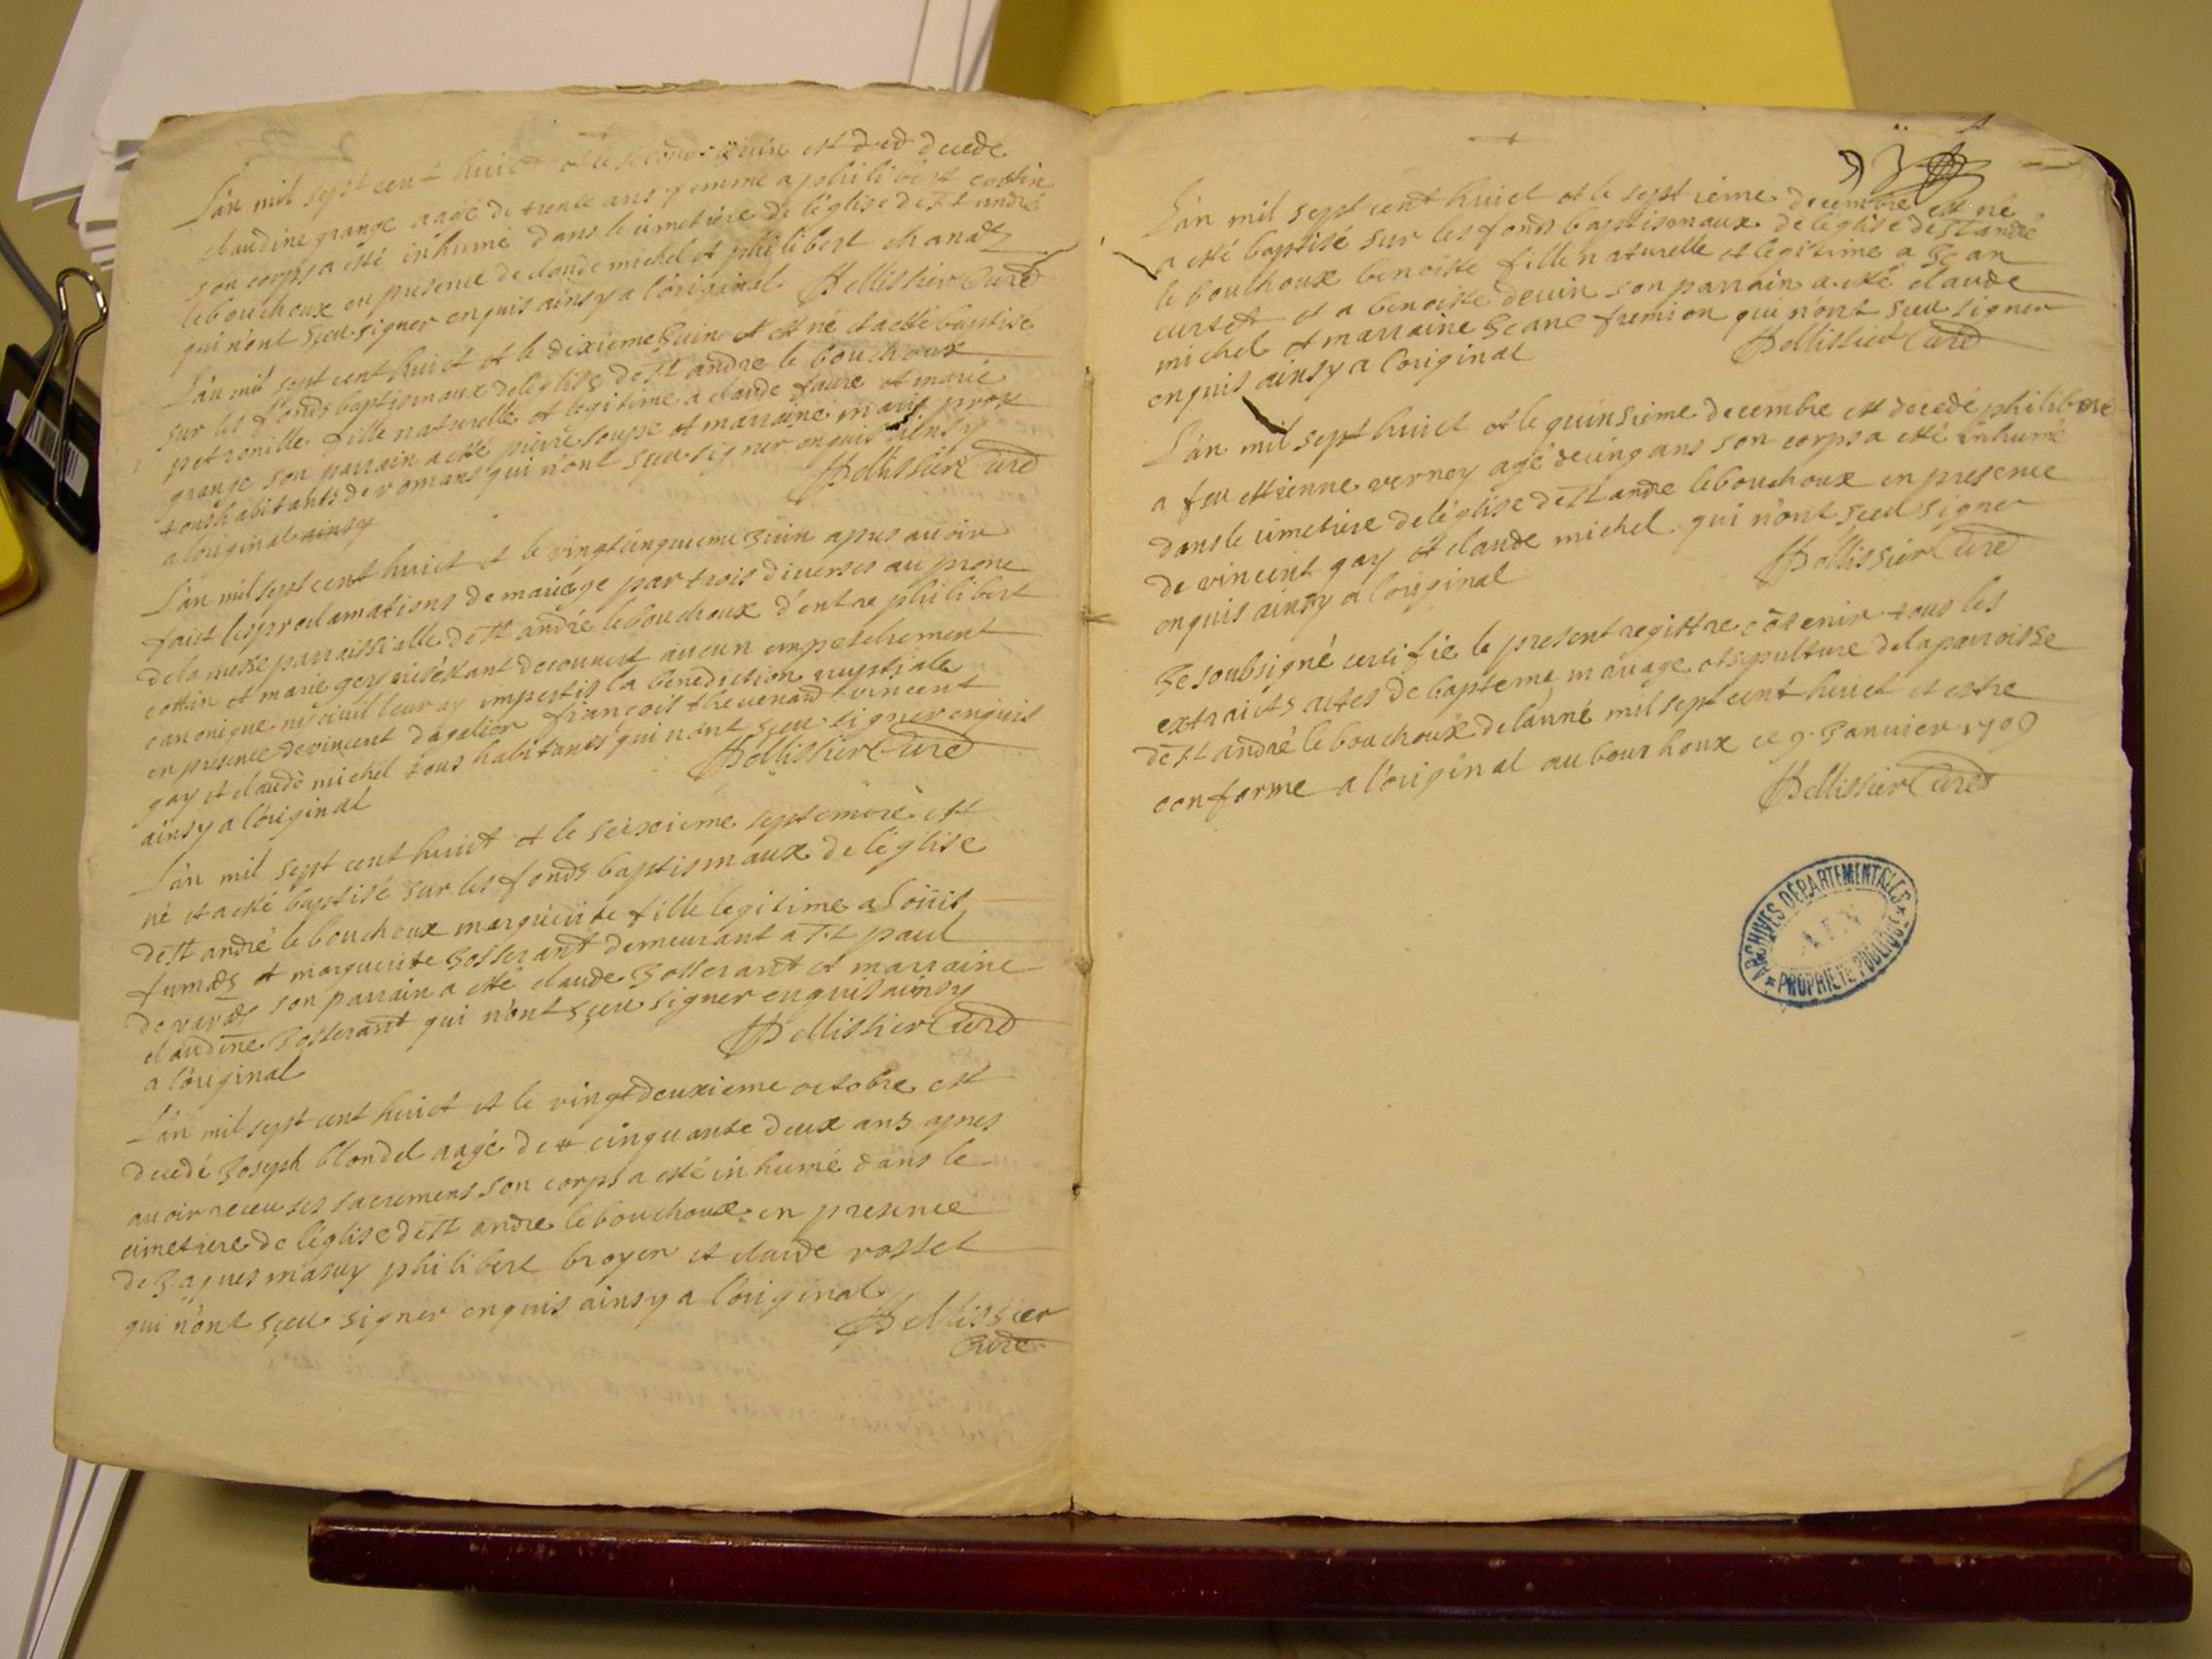 L'an mil sept cent huict et le second juin est deced decedé
claudine grange aagé de trente ans femme a philibert cottin
son corps a esté inhumé dans le cimetiere de l'église de st andré
lebouchoux en presence de claude michel et philibert chanat
qui n'ont sçeu signer enquis ainsy a l'original Pellissier Curé
L'an mil sept cent huict et le dixieme juin est né et a esté baptisé
sur les fonds baptismaux de leglise de st andre le bouchoux
petronille fille naturelle et legitime a claude faure et marie
grange son parrain a esté pierre soupe et marraine marie prost
tous habitants de romans qui n'ont sçeu signer enquis ainsy
a l'original ainsy Pellissier Curé
L'an mil sept cent huict et le vingt cinquieme juin apres avoir
faict les proclamations de mariage par trois diverses au prone
de la messe parraissialle de st andré lebouchoux d'entre philibert
cottin et marie gey nestant decouvert aucun empeschement
canonique ny civil leur ay imperti la benediction nuptiale
en présence de vincent dagalier françois thevenard vincent
gay et claude michel tous habitants qui n'ont sçeu signer enquis
ainsy a l'original Pellissier Curé
L'an mil sept cent huict et le seixieme septembre est
né et a esté baptisé sur les fonds baptismaux de l'église
de st andré le bouchoux marguerite fille legitime a Louis
et marguerite josserant demeurant a st paul
de varas son parrain a esté claude josserant et marraine
claudine josserant qui n'ont sçeu signer enquis ainsy
a l'original Pellissier Curé
L'an mil sept cent huict et le vingt deuxieme octobre est
decedé joseph blondel aagé de cinquante deux ans apres
avoir receu ses sacremens son corps a esté inhumé dans le
cimetiere de léglise de st andre lebouchoux en presence
de jaques masuy philibert broyer et claude rosset
qui n'ont sçeu signer enquis ainsy a l'original
Pellissier
Curé
3
L'an mil sept cent huict et le septieme decembre est né
a esté baptisé sur les fonds baptismaux de leglise de st andré
le bouchoux benoiste fille naturelle et legitime a jean
curtet et a benoiste devin son parrain a esté claude
michel et marraine jeane fremion qui n'ont sceu signer
enquis ainsy a l'original Pellissier Curé
L'an mil sept huict et le quinsieme decembre est decedé philiberte
a feu estienne verney agé de cinq ans son corps a esté inhumé
dans le cimetiere de léglise de st andre lebouchoux en presence
de vincent gay et claude michel qui n'ont sceu signer
enquis ainsy a l'original Pellissier Curé
Je soubsigné certifie le present registre côtenir tous les
extraicts actes de bapteme mariage et sepulture de la parroisse
de st andré le bouchoux de lanné mil sept cent huict et estre
conforme a l'original au bouchoux ce 9 janvier 1709
Pellissier Curé
ARCHIVES DÉPARTEMENTALES
AIN
PROPRIÉTÉ PUBLIQUE